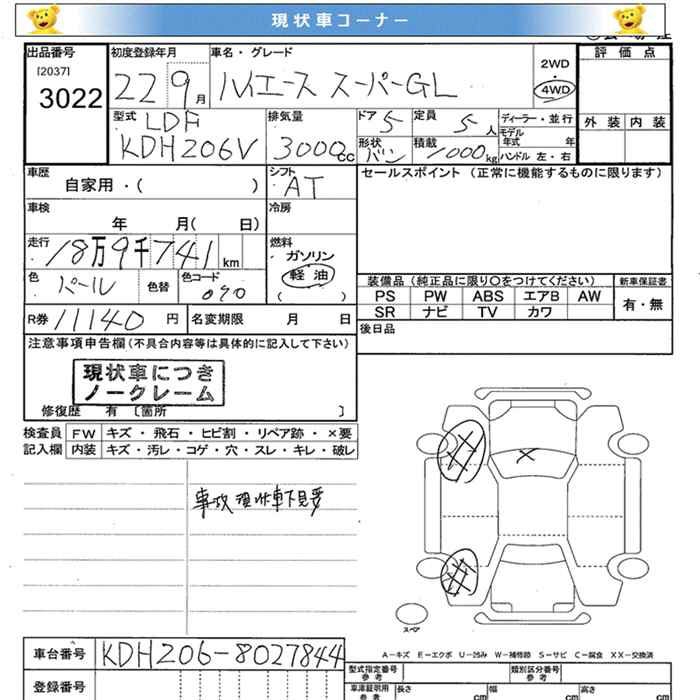 現状車コーナー
出品番号
[2037]
3022
初度登録年月
22 9月
車名・グレード
ハイエース スーパーGL
2WD
・
4WD
評価点
外装 内装
型式
LDF
KDH206V
排気量
3000cc
ドア 5
形状 バン
定員 5人
積載 1000kg
ディーラー・並行
モデル年式 年
ハンドル 左・右
車歴
自家用・( )
シフト
AT
セールスポイント(正常に機能するものに限ります)
車検
年 月( 日)
冷房
走行
18万9千741km
燃料
ガソリン
軽油
( )
色 パール
色替
色コード
070
装備品(純正品に限り○をつけてください)
PS PW ABS エアB AW
SR ナビ TV カワ
新車保証書
有・無
R券 11140円
名変期限 月 日
後日品
注意事項申告欄(不具合内容等は具体的に記入して下さい)
現状車につき
ノークレーム
修復歴 有 [箇所 ]
検査員
記入欄
FW キズ・飛石・ヒビ割・リペア跡・×要
内装 キズ・汚レ・コゲ・穴・スレ・キレ・破レ
事故現状車下見要
スペア
A-キズ E-エクボ U-凹み W-補修跡 S-サビ C-腐食 XX-交換済
車台番号
KDH206-8027844
登録番号
型式指定番号
参考
類別区分番号
参考
車庫証明用
参考
長さ cm
幅 cm
高さ cm